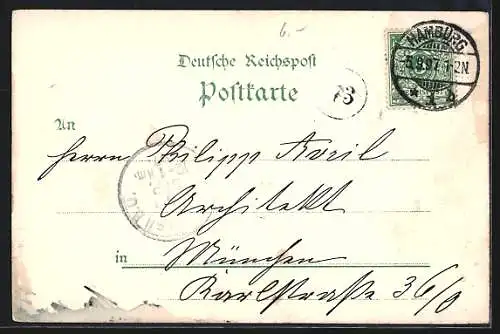 6.-
Deutsche Reichspost
Postkarte
HAMBURG
5.9.97. 1-2N.
* 1 b
73
An
Herrn Philipp
Architekt
in München
Karlstraße 36/0